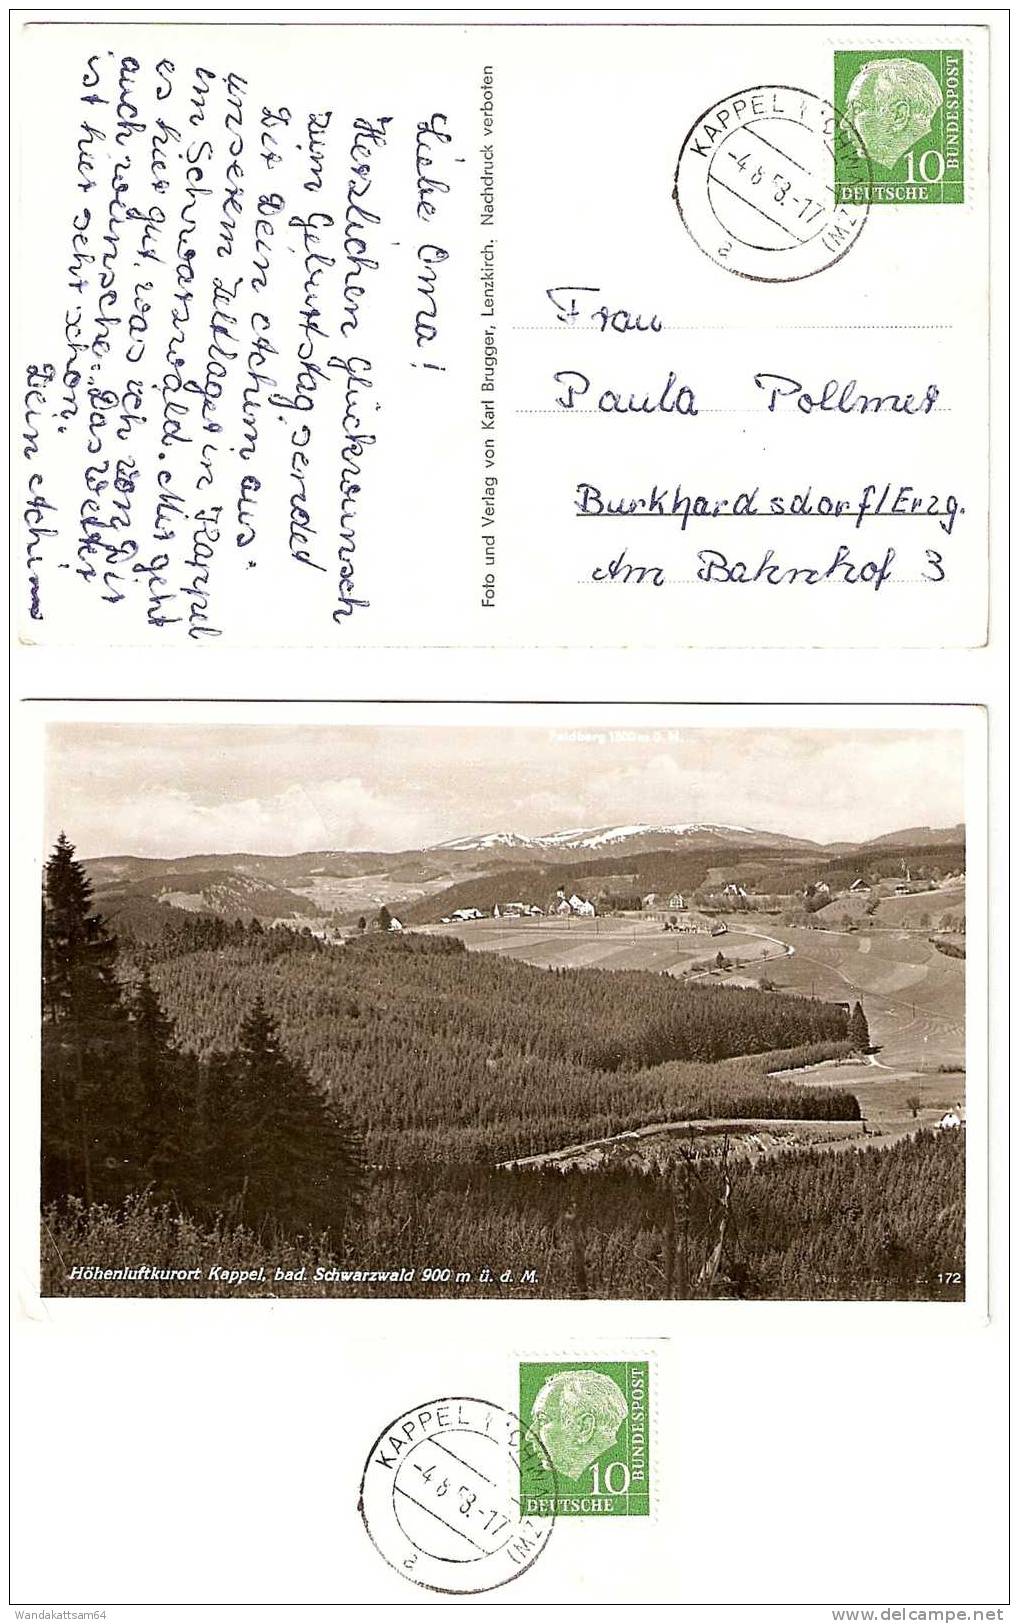 Liebe Oma!
Herzlichen Glückwunsch
zum Geburtstag sendet
Dir Dein Achim aus
unserem Zeltlager in Kappel
im Schwarzwald. Mir geht
es hier gut, was ich von Dir
auch wünsche. Das Wetter
ist hier sehr schön.
Dein Achim
Foto und Verlag von Karl Brugger, Lenzkirch. Nachdruck verboten
KAPPEL
-4.8.58.-17
a
10
DEUTSCHE
BUNDESPOST
Frau
Paula Pollmer
Burkhardsdorf/Erzg.
Am Bahnhof 3
Feldberg 1500 m ü. M.
Höhenluftkurort Kappel, bad. Schwarzwald 900 m ü. d. M.
172
KAPPEL
-4.8.58.-17
a
10
DEUTSCHE
BUNDESPOST
Wandakattsam64
delcampe.net